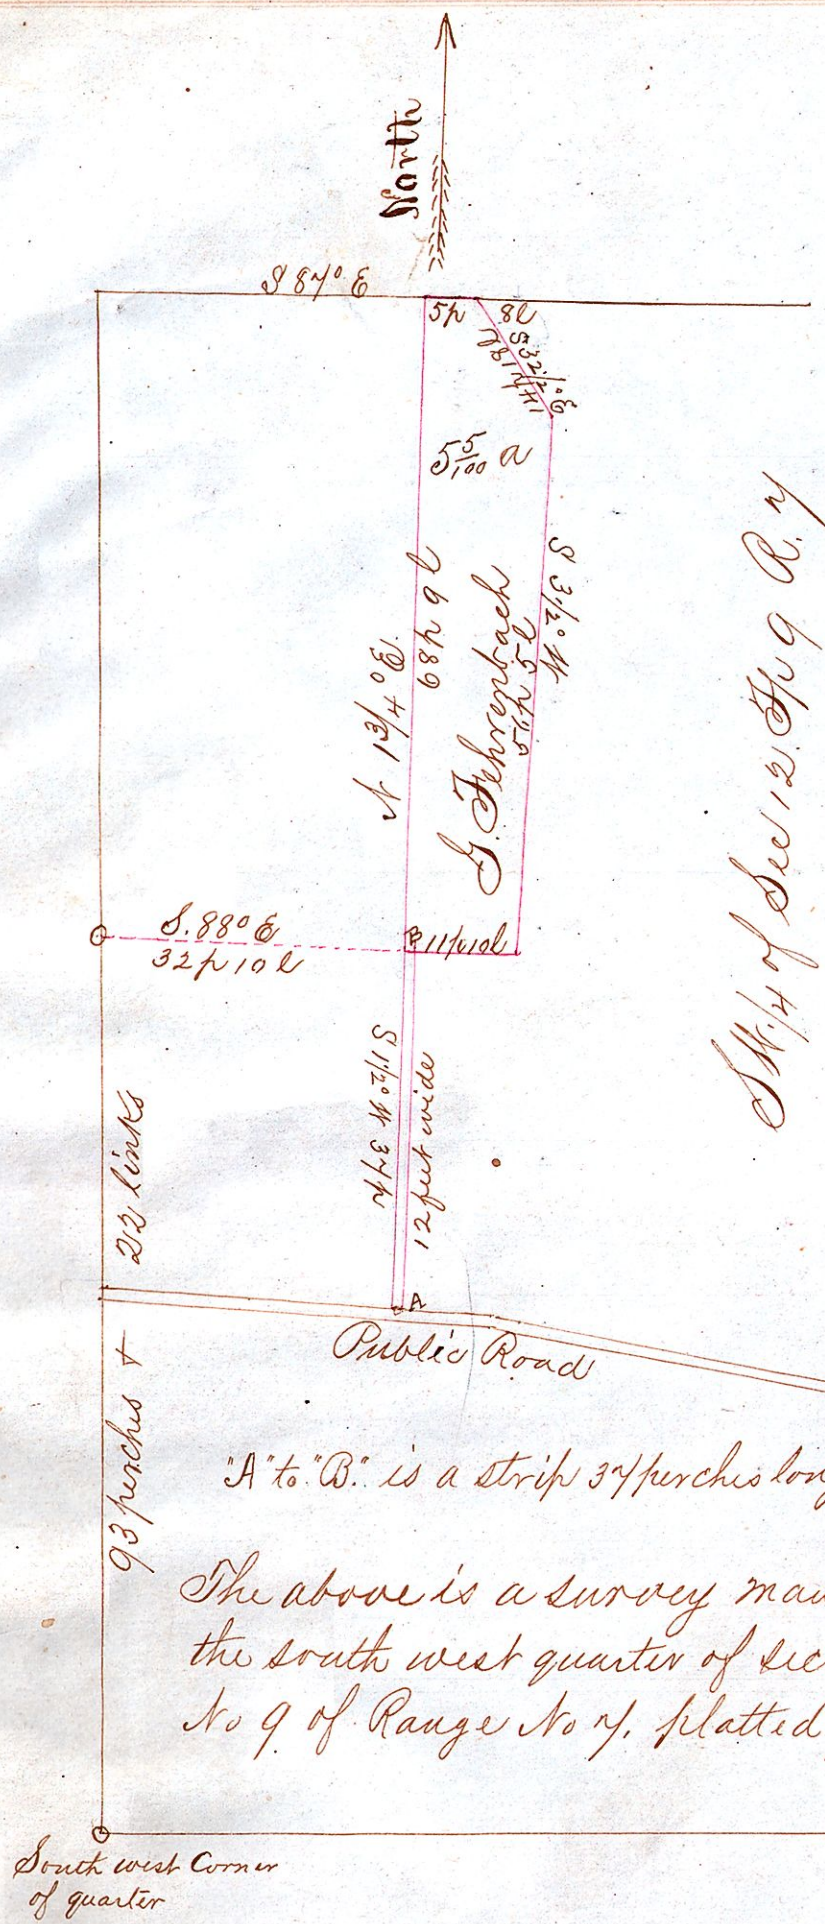 North
S 87° E
5p 8l
S 32 1/2° E
14p 18l
5 5/100 a
N 1 3/4° E.
68p 9l
G. Fehrenbach
S 3 1/2° W
51p 5l
SW. 1/4 of Sec 12. Tp 9 R. 7
S. 88° E
32p 10l
B 11p 10l
S 1 1/2° W 37p
12 feet wide
93 perches + 22 links
A
Public Road
"A" to "B." is a strip 37 perches long
The above is a survey
the south west quarter of sec
No 9 of Range No 7. platted
South west Corner
of quarter